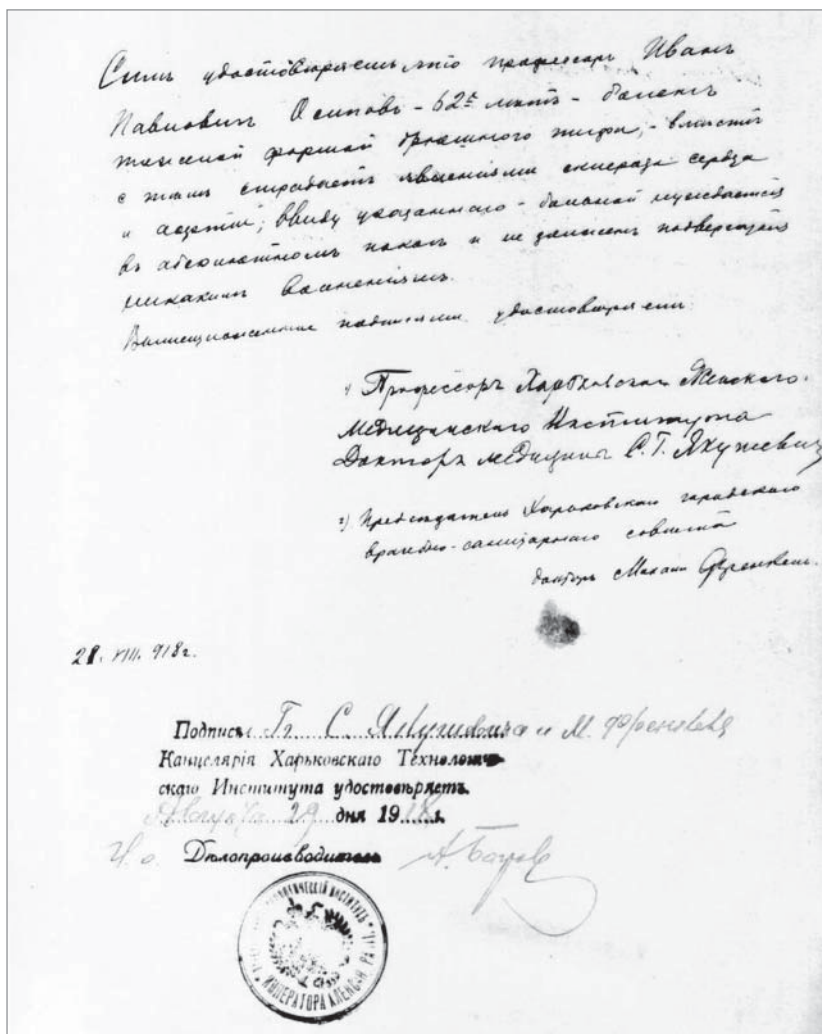 Симъ удостовѣряемъ что профессоръ Иванъ
Павловичъ Осиповъ - 62х лѣтъ - боленъ
тяжелой формой брюшного тифа, - вмѣстѣ
с тѣмъ страдаетъ явленіями склероза сердца
и аорты; ввиду указаннаго - больной нуждается
въ абсолютномъ покоѣ и не долженъ подвергаться
никакимъ волненіямъ.
Вышеизложенное подписями удостовѣряемъ
1) Профессоръ Харьковскаго Женскаго
Медицинскаго Института
Докторъ медицины С. Г. Якушевичъ
2) Предсѣдатель Харьковскаго городского
врачебно-санитарнаго совѣта
докторъ Френкель.
28. VIII. 918 г.
Подписи Гг. С. Якушевича и М. Френкеля
Канцелярія Харьковскаго Технологиче-
скаго Института удостовѣряетъ.
Августа 29 дня 1918 г.
И. о. Дѣлопроизводителя
ИМПЕРАТОРА АЛЕКСАНДРА